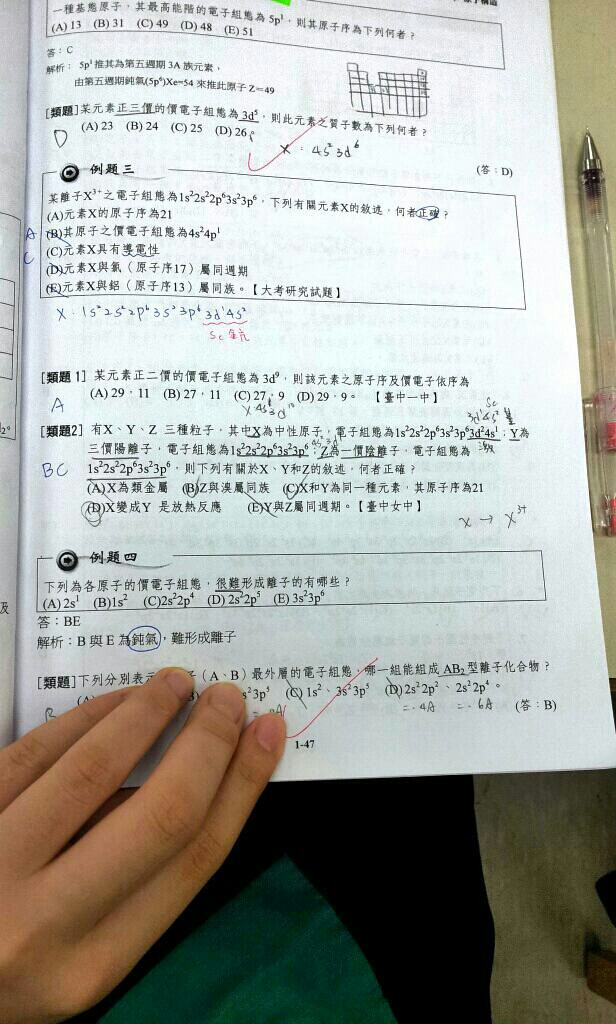 一種基態原子，其最高能階的電子組態為5p¹，則其原子序為下列何者？
(A) 13 (B) 31 (C) 49 (D) 48 (E) 51
答：C
解析：5p¹推其為第五週期 3A 族元素，
由第五週期鈍氣(5p⁶)Xe=54 來推此原子 Z=49
[類題]某元素正三價的價電子組態為 3d⁵，則此元素之質子數為下列何者？
D (A) 23 (B) 24 (C) 25 (D) 26。
X：4s²3d⁶
(答：D)
例題三
某離子X³⁺之電子組態為1s²2s²2p⁶3s²3p⁶，下列有關元素X的敘述，何者正確？
(A)元素X的原子序為21
A (B)其原子之價電子組態為4s²4p¹
C (C)元素X具有導電性
(D)元素X與氯（原子序17）屬同週期
(E)元素X與鋁（原子序13）屬同族。【大考研究試題】
X：1s²2s²2p⁶3s²3p⁶3d¹4s²
Sc 鈧
[類題 1] 某元素正二價的價電子組態為 3d⁹，則該元素之原子序及價電子依序為
A (A) 29，11 (B) 27，11 (C) 27，9 (D) 29，9。 【臺中一中】
X 4s¹3d¹⁰
Sc
3d¹4s²
[類題2] 有X、Y、Z 三種粒子，其中X為中性原子，電子組態為1s²2s²2p⁶3s²3p⁶3d²4s¹；Y為
三價陽離子，電子組態為1s²2s²2p⁶3s²3p⁶；Z為一價陰離子，電子組態為
BC 1s²2s²2p⁶3s²3p⁶，則下列有關於X、Y和Z的敘述，何者正確？
(A)X為類金屬 (B)Z與溴屬同族 (C)X和Y為同一種元素，其原子序為21
(D)X變成Y 是放熱反應 (E)Y與Z屬同週期。【臺中女中】
X → X³⁺
例題四
下列為各原子的價電子組態，很難形成離子的有哪些？
(A) 2s¹ (B)1s² (C)2s²2p⁴ (D) 2s²2p⁵ (E) 3s²3p⁶
答：BE
解析：B 與 E 為鈍氣，難形成離子
[類題]下列分別表示 子（A、B）最外層的電子組態，哪一組能組成 AB₂型離子化合物？
s²3p⁵ (C) 1s²、3s²3p⁵ (D) 2s²2p²、2s²2p⁴。
=4A =6A (答：B)
1-47